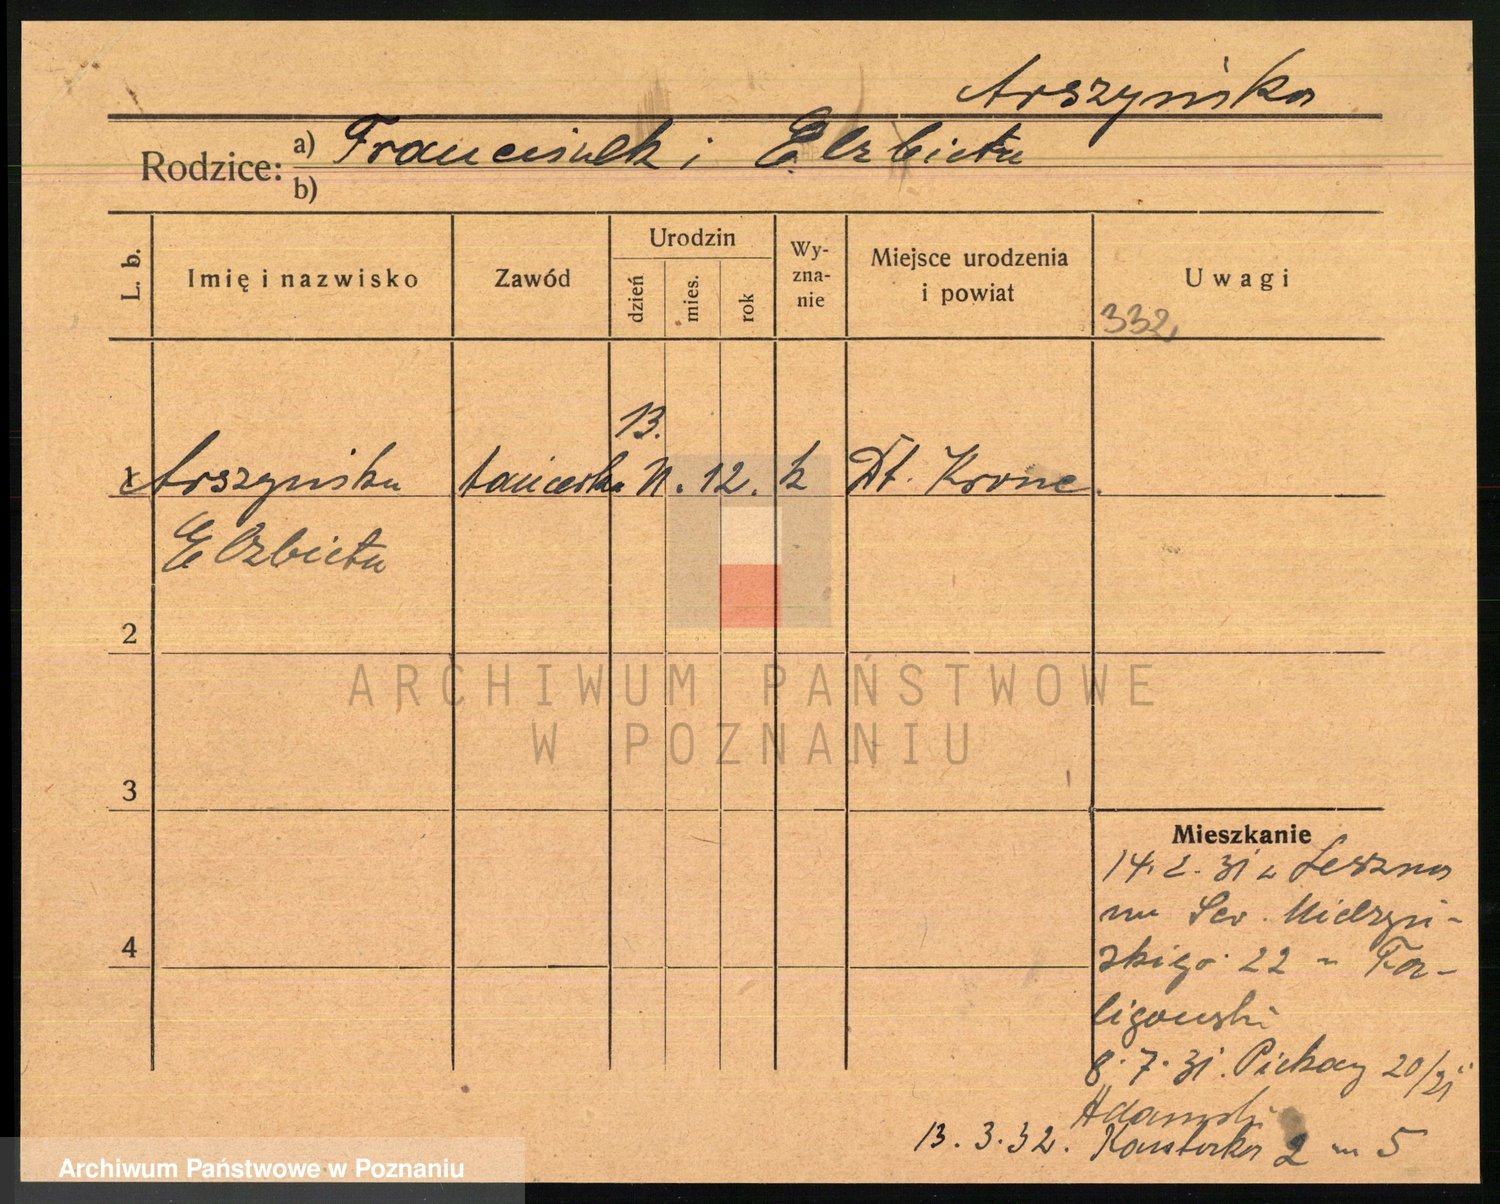 Arszyńska
Rodzice: a) Franciszek i Elżbieta
b)
L. b.
Imię i nazwisko
Zawód
Urodzin
dzień
mies.
rok
Wy-
zna-
nie
Miejsce urodzenia
i powiat
Uwagi
332,
13.
1 Arszyńska tancerka 11. 12. k Dt. Krone.
Elżbieta
2
ARCHIWUM PAŃSTWOWE
W POZNANIU
3
Mieszkanie
14. 2. 31 z Leszna
na Sew. Mielżyń-
skiego 22 - Fa-
ligowski
4
8. 7. 31. Piekary 20/21
Adamski
13. 3. 32. Kantaka 2 m 5
Archiwum Państwowe w Poznaniu